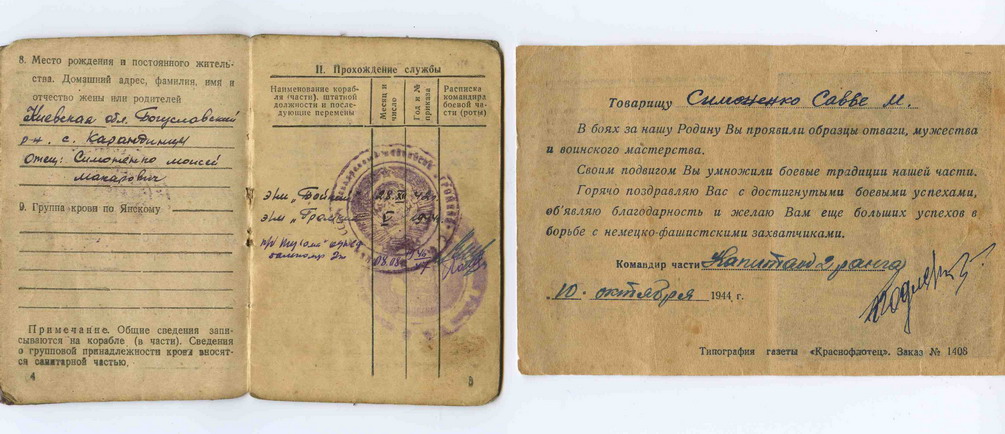 8. Место рождения и постоянного житель-
ства. Домашний адрес, фамилия, имя и
отчество жены или родителей
Киевская обл. Богуславский
р-н. с. Карандинцы
отец: Симоненко моисей
макарович
9. Группа крови по Янскому
Примечание. Общие сведения запи-
сываются на корабле (в части). Сведения
о групповой принадлежности крови вносят-
ся санитарной частью.
4
II. Прохождение службы
Наименование кораб-
ля (части), штатной
должности и после-
дующие перемены
Месяц и
число
Год и №
приказа
Расписка
командира
боевой ча-
сти (роты)
эм „Бойкий"
эм
Товарищу Симоненко Савве М.
В боях за нашу Родину Вы проявили образцы отваги, мужества
и воинского мастерства.
Своим подвигом Вы умножили боевые традиции нашей части.
Горячо поздравляю Вас с достигнутыми боевыми успехами,
объявляю благодарность и желаю Вам еще больших успехов в
борьбе с немецко-фашистскими захватчиками.
Командир части Капитан 2 ранга
„10" октября 1944 г.
Типография газеты «Краснофлотец». Заказ № 1408